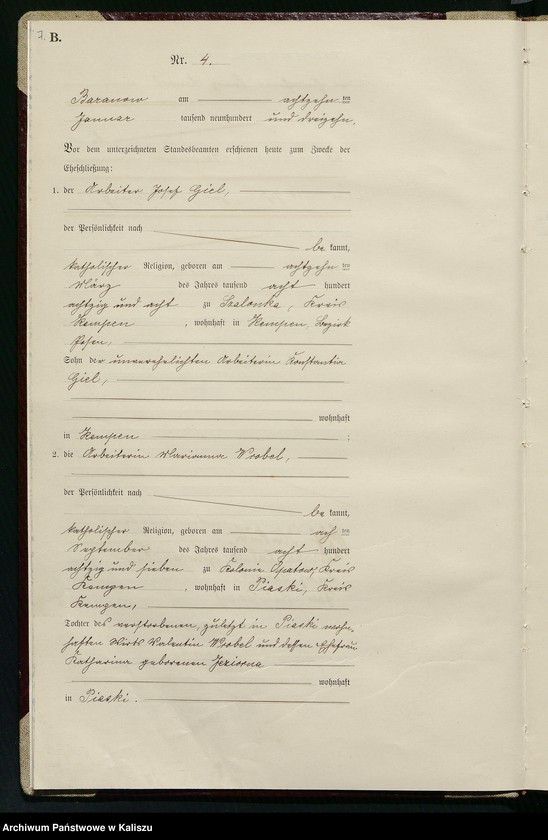 7. B.
Nr. 4.
Baranow am achtzehn ten
Januar tausend neunhundert und dreizehn.
Vor dem unterzeichneten Standesbeamten erschienen heute zum Zwecke der
Eheschließung:
1. der Arbeiter Josef Giel,
der Persönlichkeit nach
be kannt,
katholischer Religion, geboren am achtzehn ten
März des Jahres tausend acht hundert
achtzig und acht zu Szalonka, Kreis
Kempen, wohnhaft in Kempen, Bezirk
Posen,
Sohn der unverehelichten Arbeiterin Konstantia
Giel,
wohnhaft
in Kempen ;
2. die Arbeiterin Marianna Wrobel,
der Persönlichkeit nach
be kannt,
katholischer Religion, geboren am ach ten
September des Jahres tausend acht hundert
achtzig und sieben zu Kolonie Opatow, Kreis
Kempen, wohnhaft in Piaski, Kreis
Kempen,
Tochter des verstorbenen, zuletzt in Piaski wohn-
haften Wirts Valentin Wrobel und dessen Ehefrau
Katharina geborenen Jeziorna
wohnhaft
in Piaski.
Archiwum Państwowe w Kaliszu